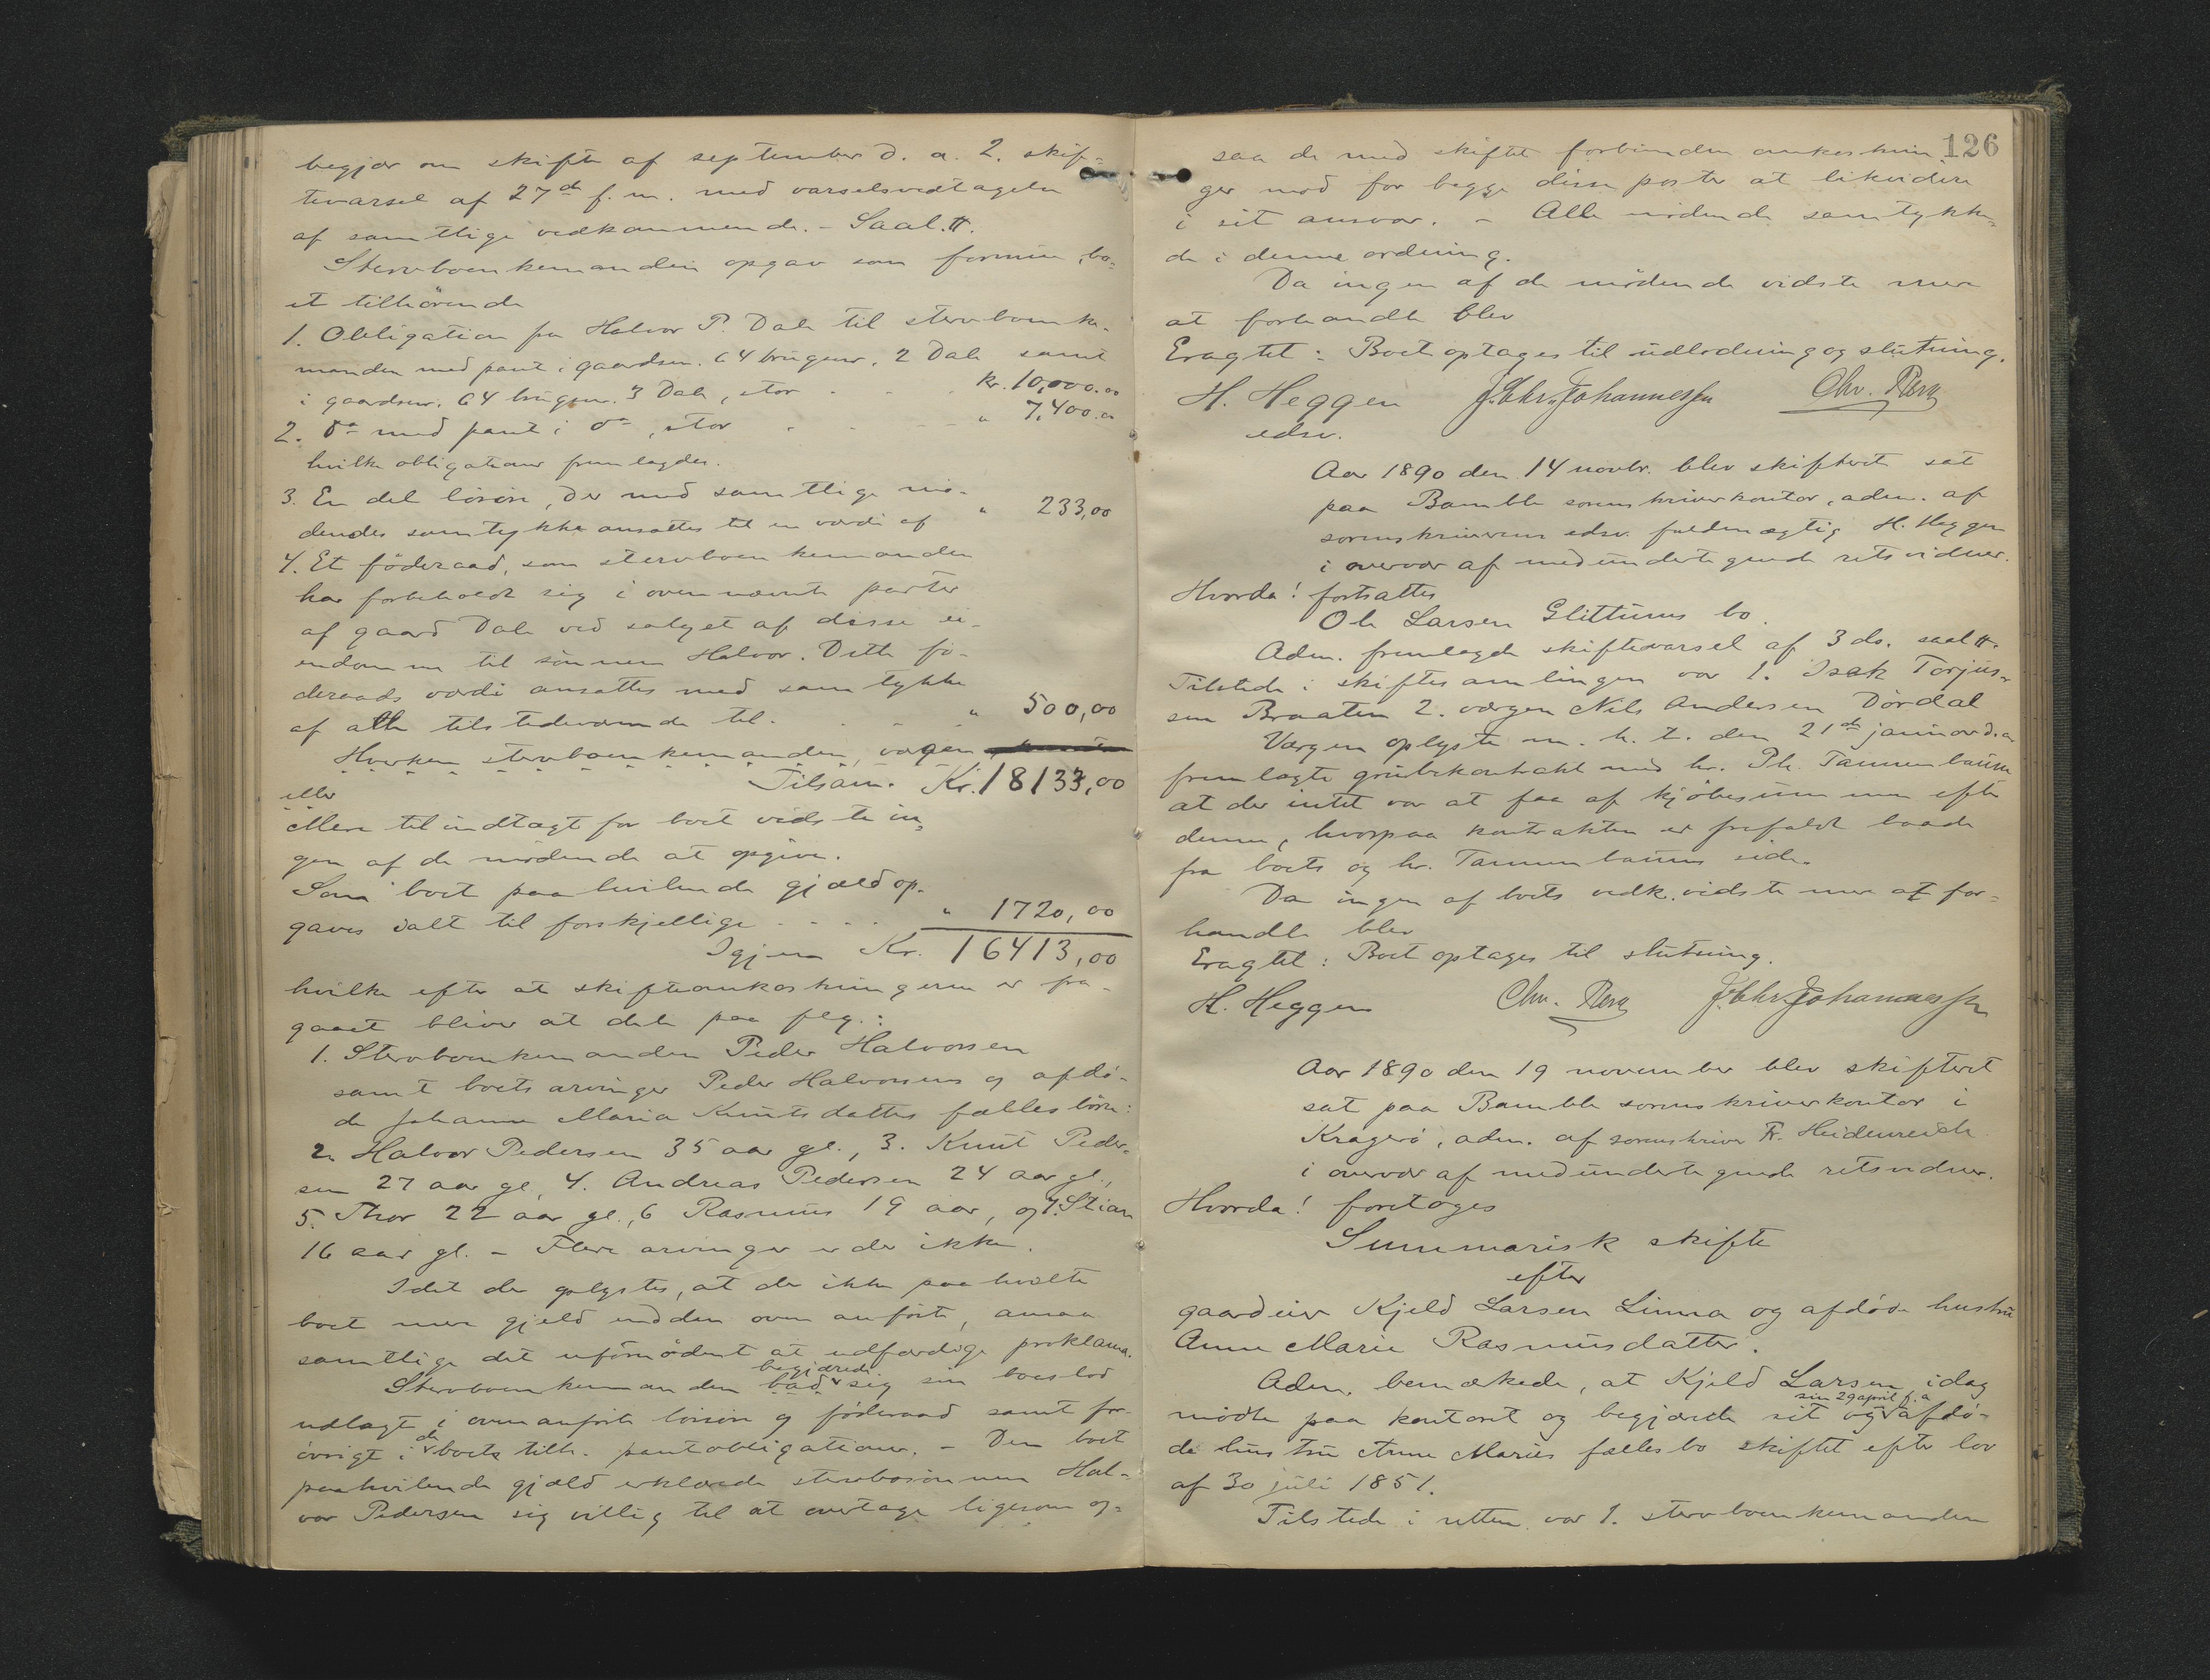 begjær om skifte af september d. a. 2. skif-
tevarsel af 27de f. m. med varselsvedtagelse
af samtlige vedkommende. - Saal. #.
Stervboenkemanden opgav som formue, bo-
et tilhørende
1. Obligation fra Halvor P. Dale til stervboenke-
manden med pant i gaardsnr. 64 brugsnr. 2 Dale samt
i gaardsnr. 64 brugsnr. 3 Dale, stor . . . kr. 10,000.00
2. do med pant i do, stor . . . " 7,400.00
hvilke obligationer fremlagdes.
3. En del løsøre, der med samtlige mø-
dendes samtykke ansattes til en værdi af " 233,00
4. Et føderaad, som stervboenkemanden
har forbeholdt sig i ovennævnte parter
af gaard Dale ved salget af disse ei-
endomme til sønnen Halvor. Dette fø-
deraads værdi ansattes med samtykke
af alle tilstedeværende til. . . . " 500,00
Hverken stervboenkemanden, værgen
Tilsam. Kr. 18133,00
eller
Mere til indtægt for boet vidste in-
gen af de mødende at opgive.
Som boet paahvilende gjæld op-
gaves ialt til forskjellige . . . . " 1720,00
Igjen Kr. 16413,00
hvilke efter at skifteomkostningerne er fra-
gaaet bliver at dele paa flg.:
1. Stervboenkemanden Peder Halvorsen
samt boets arvinger Peder Halvorsens og afdø-
de Johanne Maria Knutsdatters fælles børn:
2. Halvor Pedersen 35 aar gl., 3. Knut Peder-
sen 27 aar gl, 4. Andreas Pedersen 24 aar gl.,
5. Thor 22 aar gl., 6 Rasmus 19 aar, og 7. Stian
16 aar gl. - Flere arvinger er der ikke.
Idet der oplystes, at der ikke paahvilte
boet mer gjeld end den oven anførte, ansaa
samtlige det ufornødent at udfærdige proklama.
Stervboenkemanden bad begjærede sig sin boeslod
udlagt i ovenanførte løsøre og føderaad samt for-
øvrigt i de boets tilh. pantobligationer. - Den boet
paahvilende gjæld erklærede stervbosønnen Hal-
vor Pedersen sig villig til at overtage ligesom og-
126
saa de med skiftet forbundne omkostnin-
ger mod for begge disse poster at likvidere
i sit ansvar. - Alle mødende samtykke-
de i denne ordning.
Da ingen af de mødende vidste mere
at forhandle blev
Eragtet: Boet optages til udlodning og slutning.
H. Heggen J. Chr. Johannessen Chr. Berg
edsv.
Aar 1890 den 14 novbr. blev skifteret sat
paa Bamble sorenskriverkontor, adm. af
sorenskriverens edsv. fuldmægtig H. Heggen
i overvær af medundertegnede retsvidner.
Hvorda! fortsattes
Ole Larsen Glittums bo.
Adm. fremlagde skiftevarsel af 3 ds. saal #.
Tilstede i skiftesamlingen var 1. Isak Torjus-
sen Braaten 2. værgen Nils Andersen Dørdal
Værgen oplyste m. h. t. den 21de januar d. a.
fremlagte grubekontrakt med hr. Ph. Tannenbaum
at der intet var at faa af kjøbesummen efter
denne, hvorpaa kontrakten er frafaldt baade
fra boets og hr. Tannenbaums side.
Da ingen af boets vedk. vidste mer at for-
handle blev
Eragtet: Boet optages til slutning.
H. Heggen Chr. Berg J. Chr. Johannessen
Aar 1890 den 19 november blev skifteret
sat paa Bamble sorenskriverkontor i
Kragerø, adm. af sorenskriver Fr. Heidenreich
i overvær af medundertegnede retsvidner.
Hvorda! foretoges
Summarisk skifte
efter
gaardeier Kjeld Larsen Linna og afdøde hustru
Anne Marie Rasmusdatter.
Adm. bemærkede, at Kjeld Larsen idag
mødte paa kontoret og begjærede sit og sin 29 april f. a afdø-
de hustru Anne Maries fællesbo skiftet efter lov
af 30 juli 1851.
Tilstede i retten var 1. stervboenkemanden